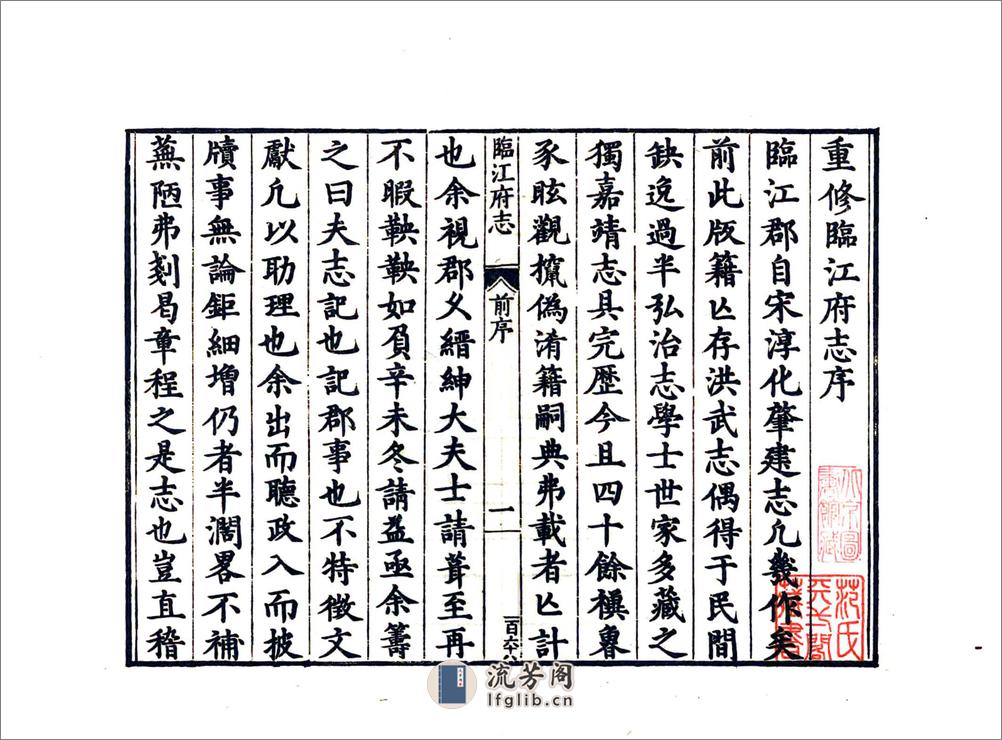 重修臨江府志序
臨江郡自宋淳化肇建志凡幾作矣
前此版籍亾存洪武志偶得于民間
缺逸過半弘治志學士世家多藏之
獨嘉靖志具完歷今且四十餘禩魯
豕眩觀攛偽淆籍嗣典弗載者亾計
臨江府志
前序
一
百六十八
也余視郡父縉紳大夫士請葺至再
不暇鞅鞅如負辛未冬請益亟余籌
之曰夫志記也記郡事也不特徵文
獻凡以助理也余出而聽政入而披
牘事無論鉅細增仍者半濶畧不補
蕪陋弗剗曷章程之是志也豈直稽
范氏天一閣藏書
流芳阁
lfglib.cn